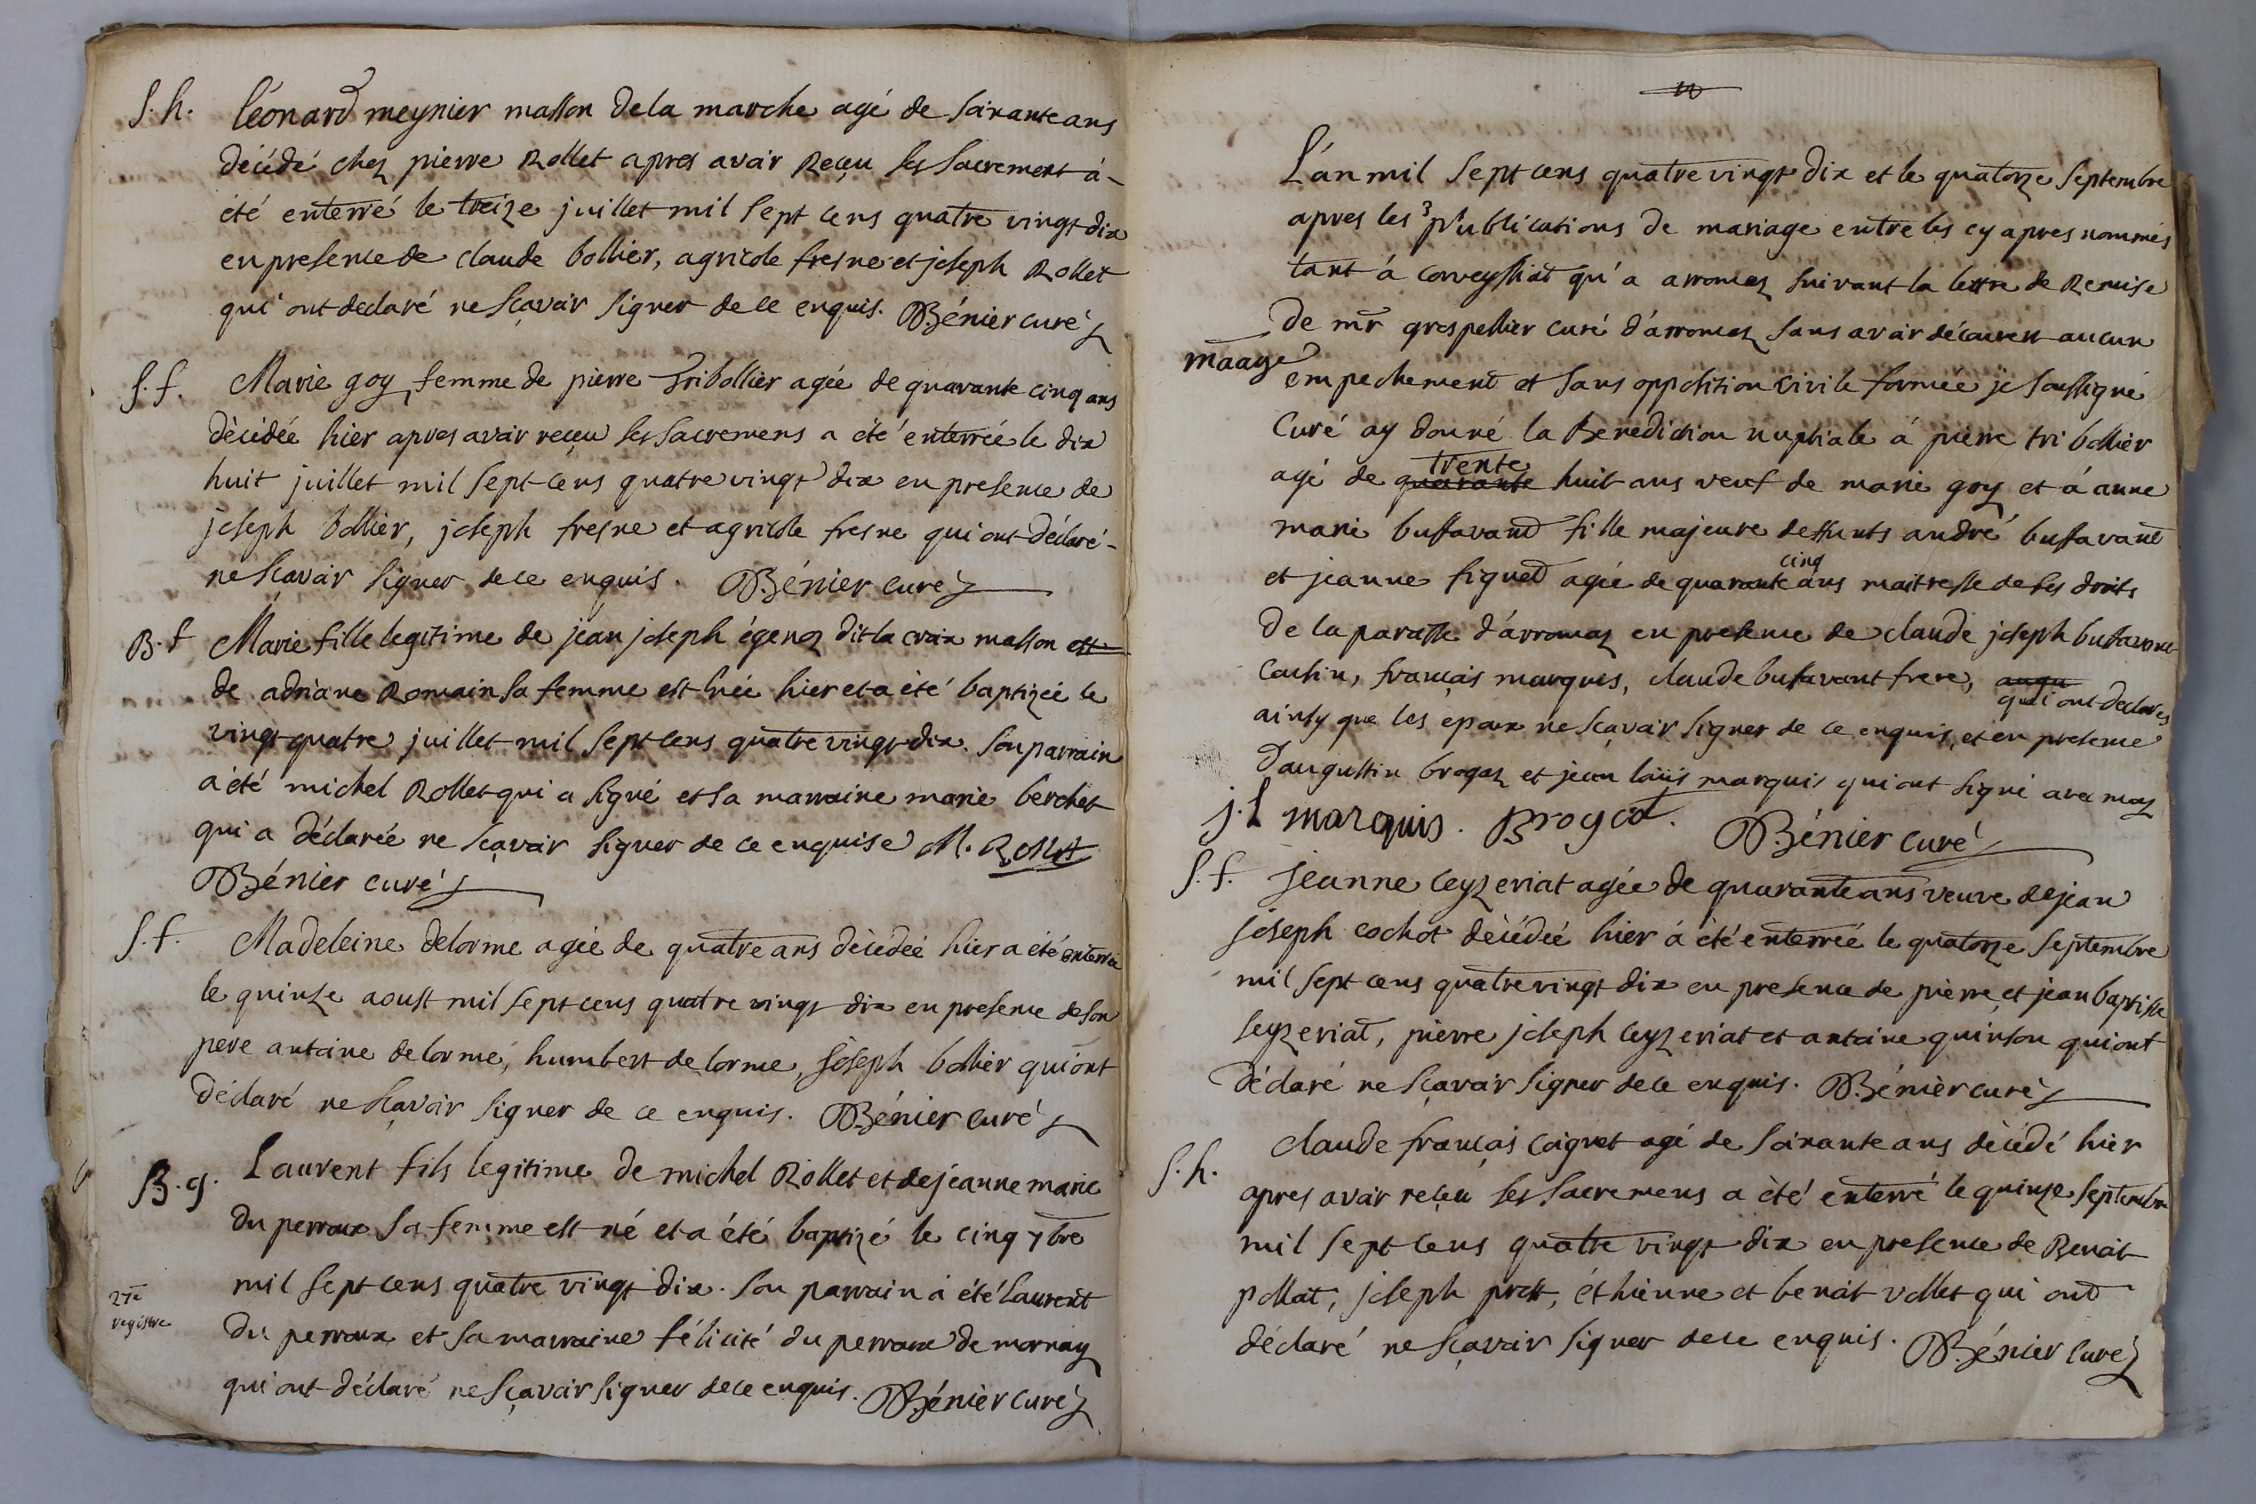 S. h. léonard meynier masson de la marche agé de soixante ans
décédé chez pierre Rollet apres avoir Reçu ses Sacrement à
été enterré le treize juillet mil sept cens quatre vingt dix
en presence de claude bollier, agricole fresne et joseph Rollet
qui ont declaré ne Sçavoir signer de ce enquis. Bénier curé
S. f. Marie goy femme de pierre tribollier agée de quarante cinq ans
décédée hier apres avoir reçeu ses Sacremens a été enterrée le dix
huit juillet mil sept cens quatre vingt dix en presence de
joseph bollier, joseph fresne et agricole fresne qui ont déclaré
ne sçavoir signer de ce enquis. Bénier curé
B. f Marie fille legitime de jean joseph égenoz dit la croix masson est
de adriane Romain sa femme est née hier et a été baptizée le
vingt quatre juillet mil sept cens quatre vingt dix. Son parrain
a été michel Rollet qui a signé et sa marraine marie berchet
qui a déclarée ne sçavoir signer de ce enquise M. Rollet
Bénier curé
S. f. Madeleine delorme agée de quatre ans décédée hier a été enterrée
le quinze aoust mil sept cens quatre vingt dix en presence de son
pere antoine delorme, humbert delorme, joseph bollier qui ont
déclaré ne sçavoir signer de ce enquis. Bénier curé
B. g. Laurent fils legitime de michel Rollet et de jeanne marie
du perroux sa femme est né et a été baptizé le cinq 7bre
mil sept cens quatre vingt dix. Son parrain a été laurent
du perroux et sa marraine félicité du perroux de mornay
qui ont déclaré ne sçavoir signer de ce enquis. Bénier curé
27e
registre
L'an mil sept cens quatre vingt dix et le quatorze septembre
apres les 3 publications de mariage entre les cy apres nommés
tant à corveyssiat qu'a aromaz suivant la lettre de Remise
de mr grospellier curé d'arromaz sans avoir découvert aucun
maage
empechement et sans opposition civile formée je soussigné
Curé ay donné la Benediction nuptiale á pierre tribollier
trente
agé de quarante huit ans veuf de marie goy et á anne
marie buffavand fille majeure deffunts andré buffavand
cinq
et jeanne figued agée de quarante ans maitresse de ses droits
de la paroisse d'arromaz en presence de claude joseph buffavand
Cousin, françois marquis, claude bufavant frere, augu
qui ont declarés
ainsy que les epoux ne sçavoir signer de ce enquis, et en presence
d'augustin brogaz et jean loüis marquis qui ont signé avec moy
j. l marquis. Brogat. Bénier curé
S. f. jeanne ceyzeriat agée de quarante ans veuve de jean
joseph cochot décédée hier á été enterrée le quatorze septembre
mil sept cens quatre vingt dix en presence de pierre et jean baptiste
seyzeriat, pierre joseph ceyzeriat et antoine quinson qui ont
déclaré ne sçavoir signer de ce enquis. Bénier curé
S. h. claude françois coignet agé de soixante ans décédé hier
apres avoir reçeu ses sacremens a été enterré le quinze septembre
mil sept cens quatre vingt dix en presence de Benoit
pollat, joseph prost, éthienne et benoit vollet qui ont
déclaré ne sçavoir signer de ce enquis. Bénier curé